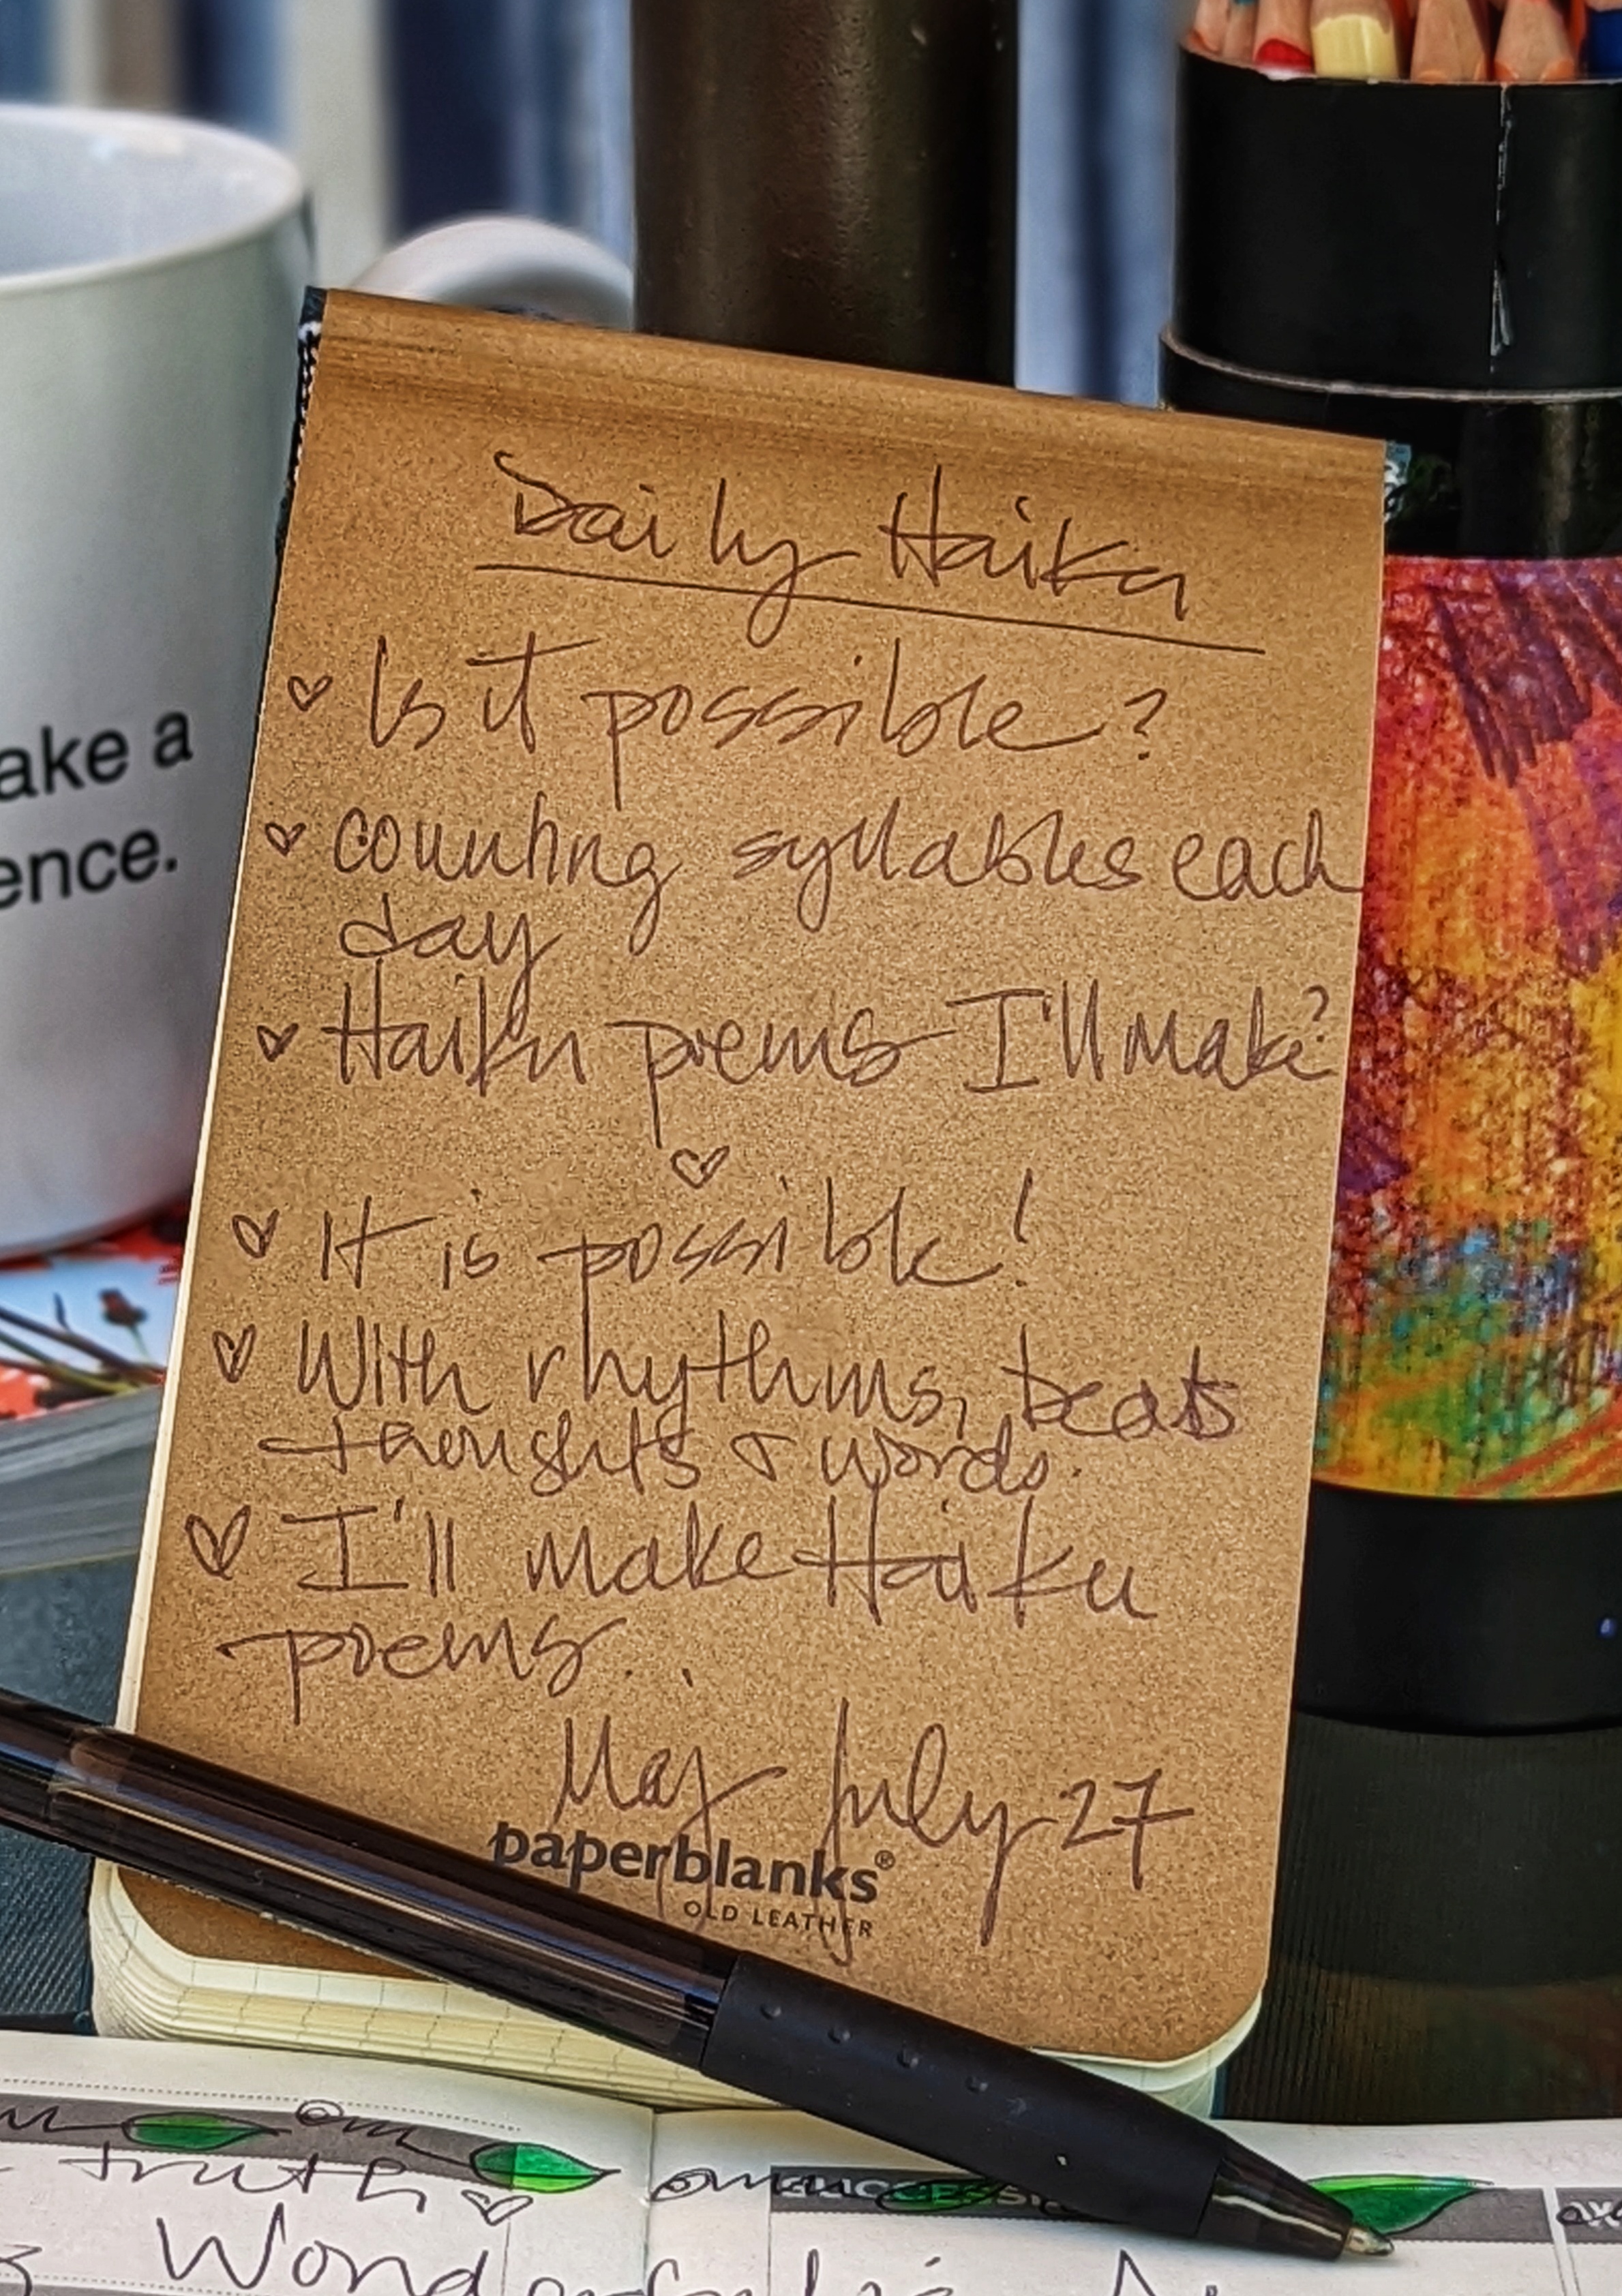 ake a
ence.
Daily Haiku
Is it possible?
counting syllables each
day
Haiku poems I'll make?
It is possible!
With rhythms, beats
thoughts & words.
I'll make Haiku
poems...
Maj July 27
paperblanks®
OLD LEATHER
om
truth
Wonderful is